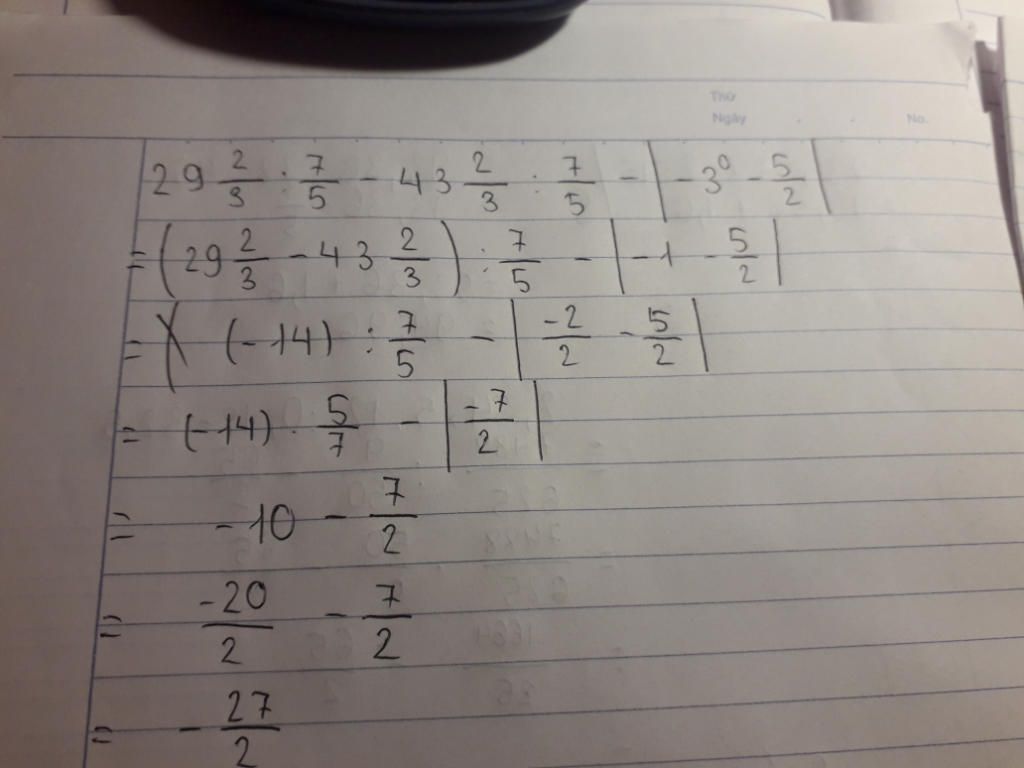 Thứ
Ngày No.
29 2/3 : 7/5 - 43 2/3 : 7/5 - |-3⁰ - 5/2|
= (29 2/3 - 43 2/3) : 7/5 - |-1 - 5/2|
= (-14) : 7/5 - |-2/2 - 5/2|
= (-14) . 5/7 - |-7/2|
= -10 - 7/2
= -20/2 - 7/2
= - 27/2